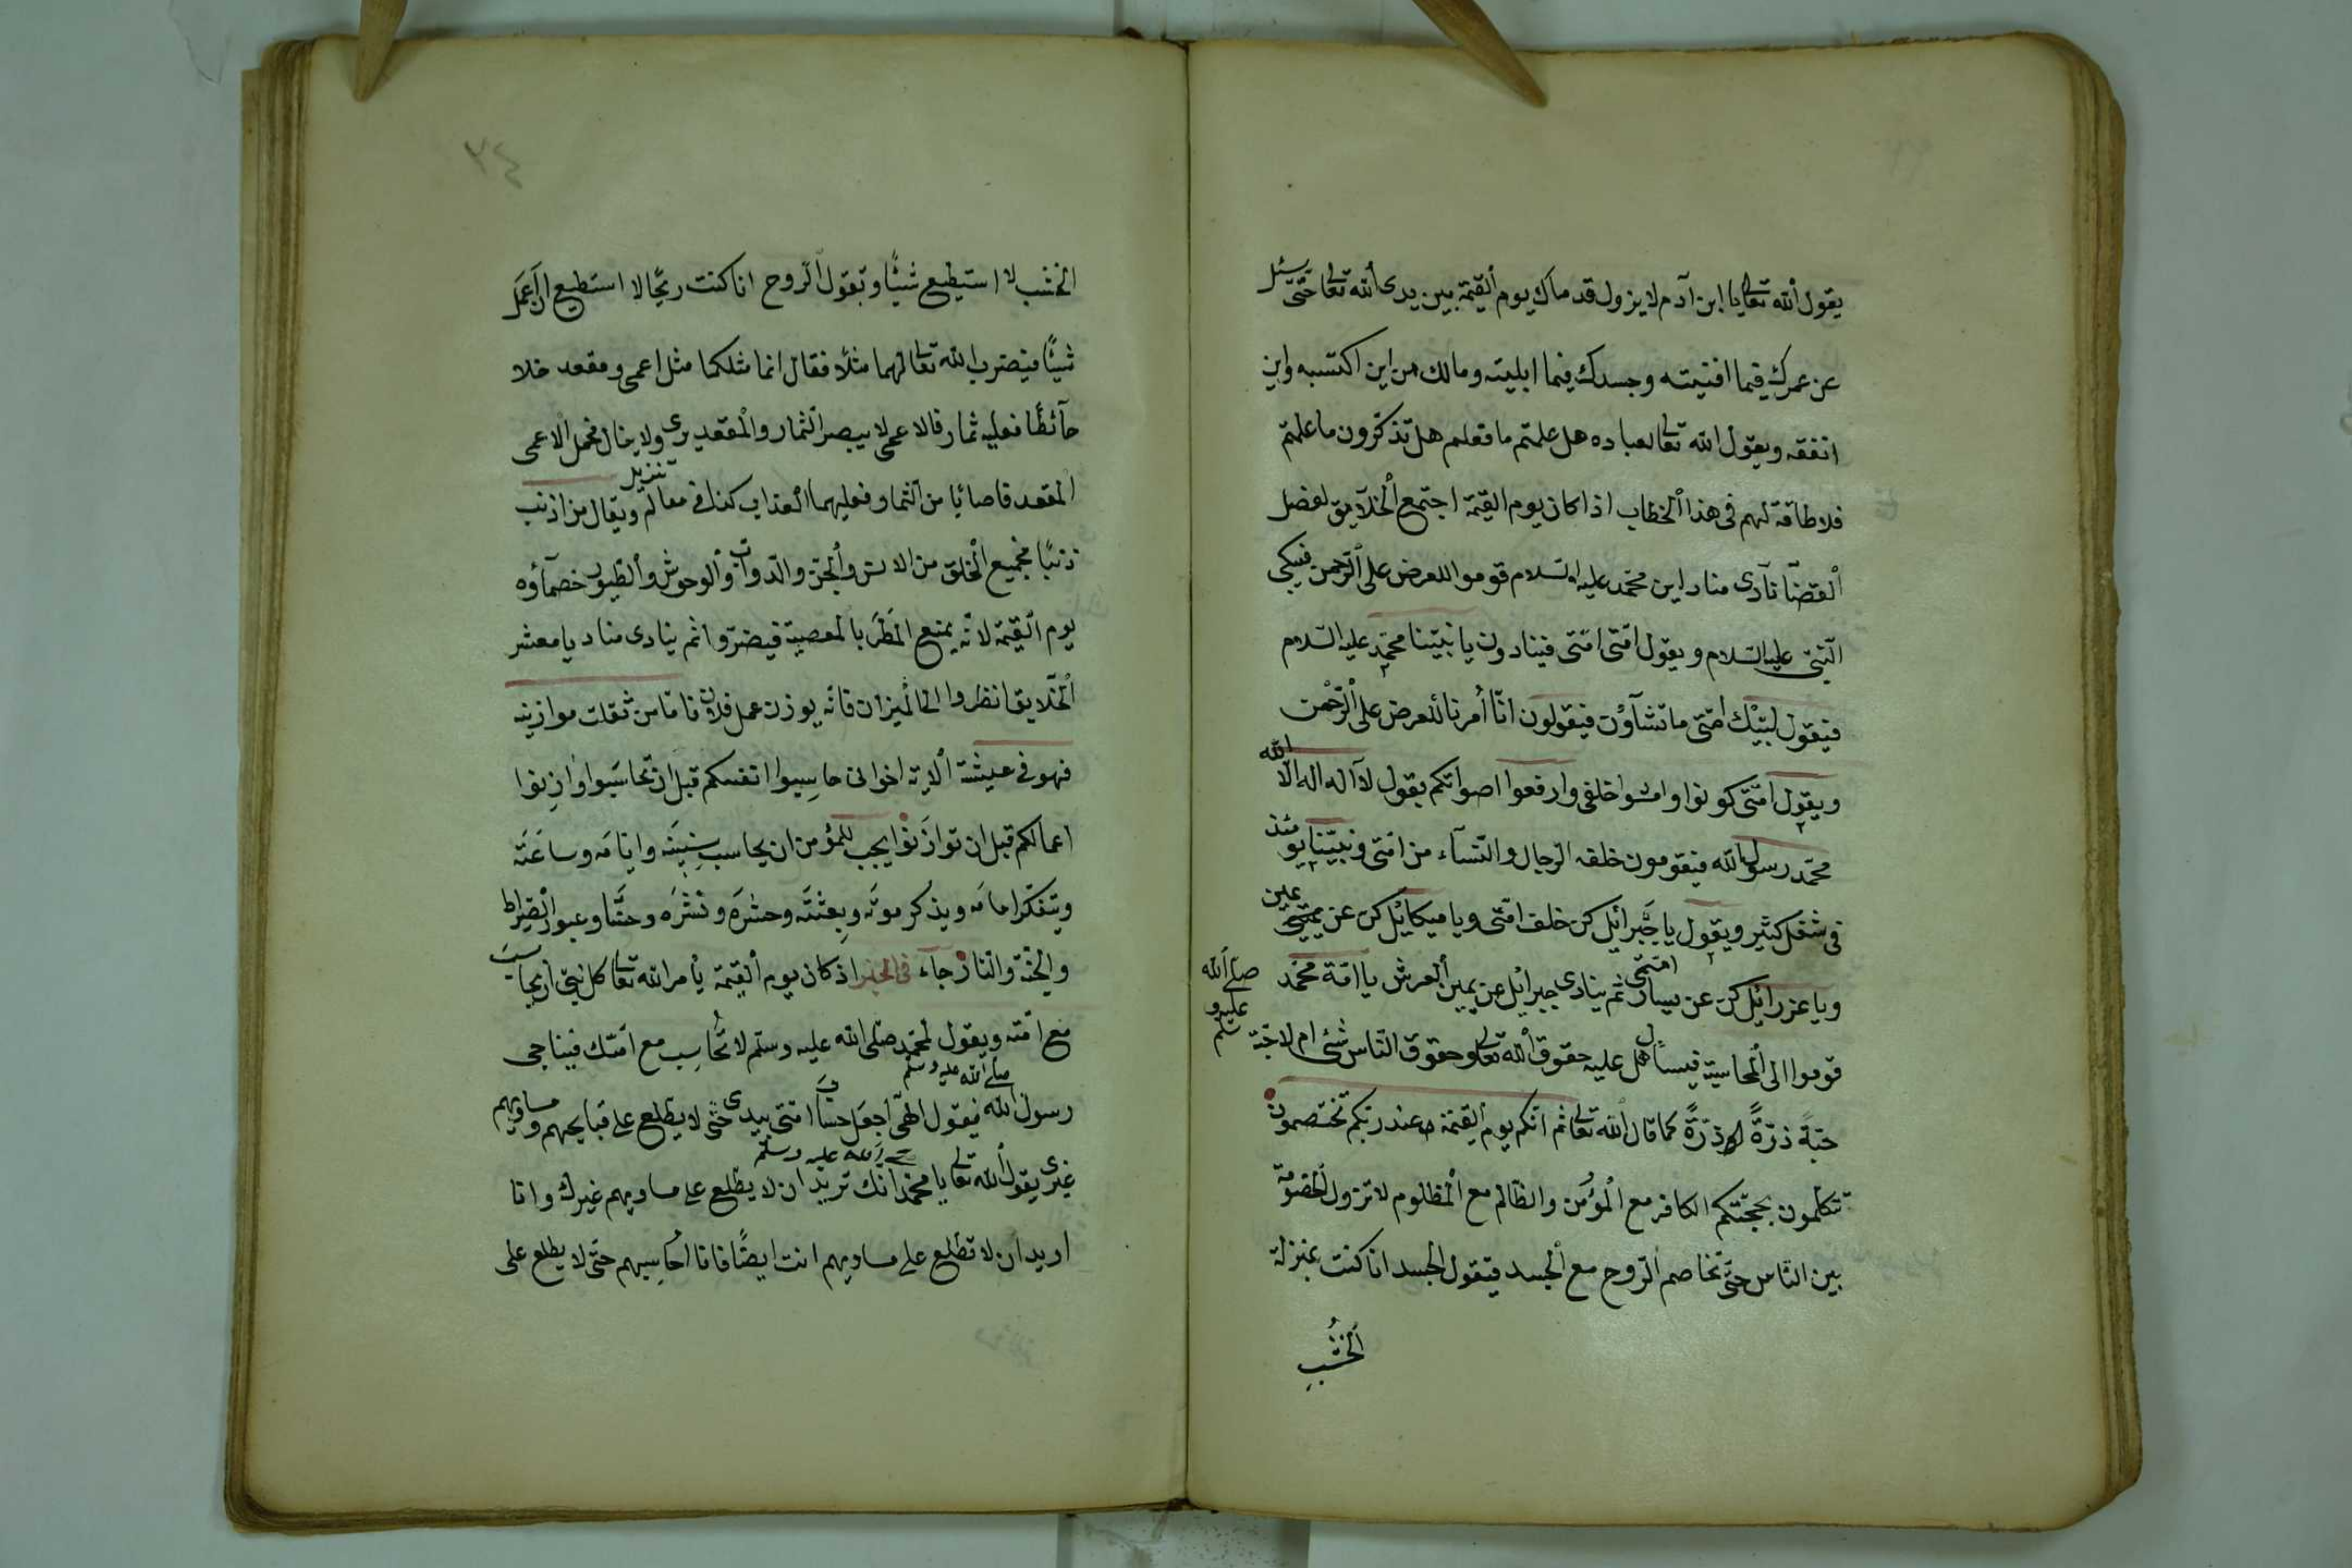 يقول الله تعالى يا ابن آدم لا يزول قدماك يوم القيمة بين يدى الله تعالى حتى سئل
عن عمرك فيما افنيته وجسدك فيما ابليته ومالك من اين اكتسبه واين
انفقه ويقول الله تعالى لعباده هل علمتم ما فعلم هل تذكرون ما علمتم
فلا طاقة لهم فى هذا الخطاب اذا كان يوم القيمة اجتمع الخلآيق لفضل
القضآ نآدى مناد اين محمد عليه السلام قوموا للعرض على الرحمن فيبكى
النبى عليه السلام ويقول امتى امتى فينادون يا نبينا محمد عليه السلام
فيقول لبيك امتى ما تشآؤن فيقولون انا أمرنا للعرض على الرحمن
ويقول امتى كونوا وامشوا خلفى وارفعوا اصواتكم يقول لآ اله اله الا الله
محمد رسول الله فيقومون خلفه الرجال والنسآء من امتى ونبينا يومئذ
فى شغل كثير ويقول يا جبرائيل كن خلف امتى ويا ميكائيل كن عن يمين
ويا عزرائيل كن عن يسار امتى ثم ينادى جبرائيل عن يمين العرش يا امة محمد صلى الله عليه و سلم
قوموا الى المحاسبة فيسأل هل عليه حقوق الله تعالى وحقوق الناس شئ ام لا حبة
حبة ذرة ذرة كما قال الله تعالى ثم انكم يوم القيمة عند ربكم تختصمون
تتكلمون بحجتكم الكافر مع المؤمن والظالم مع المظلوم لا تزول الخصومة
بين الناس حتى تخاصم الروح مع الجسد فيقول الجسد انا كنت بمنزلة
الخشب
٢٤
الخشب لا استيطيع شيئا وتقول الروح انا كنت ريحا لا استطيع ان اعمل
شيئا فيضرب الله تعالى لهما مثلا فقال انما مثلكما مثل اعمى ومقعد خلا
حآئطا فعليه ثمار فالاعمى لا يبصر الثمار والمقعد يرى ولا ينال فحمل الاعمى
المقعد فاصابا من الثمار فعليهما العذاب كذا فى معالم تنزيل ويقال من اذنب
ذنبا فجميع الخلق من الانس والجن والدواب والوحوش والطيور خصمآؤه
يوم القيمة لانه يمنع المطر بالمعصية فيضروا ثم ينادى مناد يا معشر
الخلايق انظروا الى الميزان فانه يوزن عمل فلان فاما من ثقلت موازينه
فهو فى عيشة الاية اخوانى حاسبوا انفسكم قبل ان تحاسبوا وازنوا
اعمالكم قبل ان توازنوا يجب للمؤمن ان يحاسب سنينه وايامه وساعته
ويتفكر امامه ويذكر موته وبعثته وحشره ونشره وعبور الصراط
والجنة والنار جاء فى الخبر اذ كان يوم القيمة يأمر الله تعالى كل نبى ان يحاسب
مع امته ويقول لمحمد صلى الله عليه وسلم لا تحاسب مع امتك فيناجى
رسول الله صلى الله عليه وسلم فيقول الهى اجعل حساب امتى بيدى حتى لا يطلع على قبايحهم ومساويهم
غيرى يقول الله تعالى يا محمد صلى الله عليه وسلم انك تريد ان لا يطلع على مساويهم غيرك وانا
اريد ان لا تطلع على مساويهم انت ايضا فانا احاسبهم حتى لا يطلع على